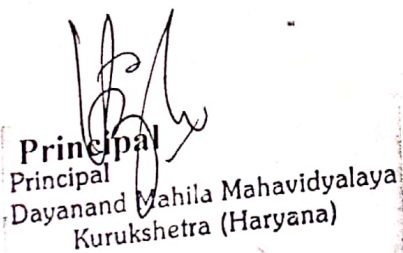 Principal
Principal
Dayanand Mahila Mahavidyalaya
Kurukshetra (Haryana)